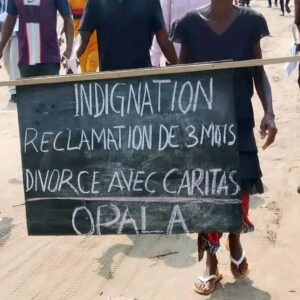 INDIGNATION
RECLAMATION DE 3 MOIS
DIVORCE AVEC CARITAS
OPALA